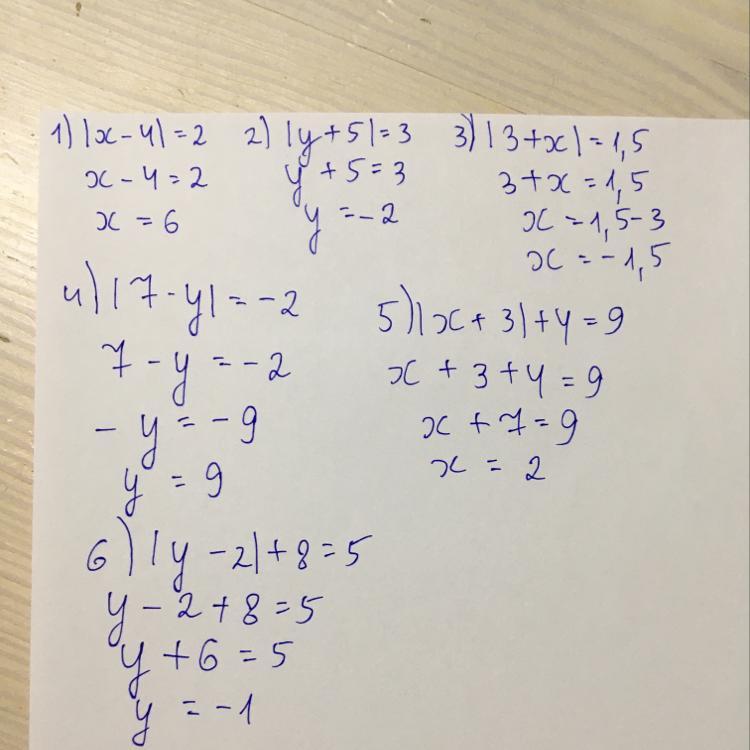 1) |x - 4| = 2
x - 4 = 2
x = 6
2) |y + 5| = 3
y + 5 = 3
y = - 2
3) |3 + x| = 1,5
3 + x = 1,5
x = 1,5 - 3
x = - 1,5
4) |7 - y| = - 2
7 - y = - 2
- y = - 9
y = 9
5) |x + 3| + 4 = 9
x + 3 + 4 = 9
x + 7 = 9
x = 2
6) |y - 2| + 8 = 5
y - 2 + 8 = 5
y + 6 = 5
y = - 1